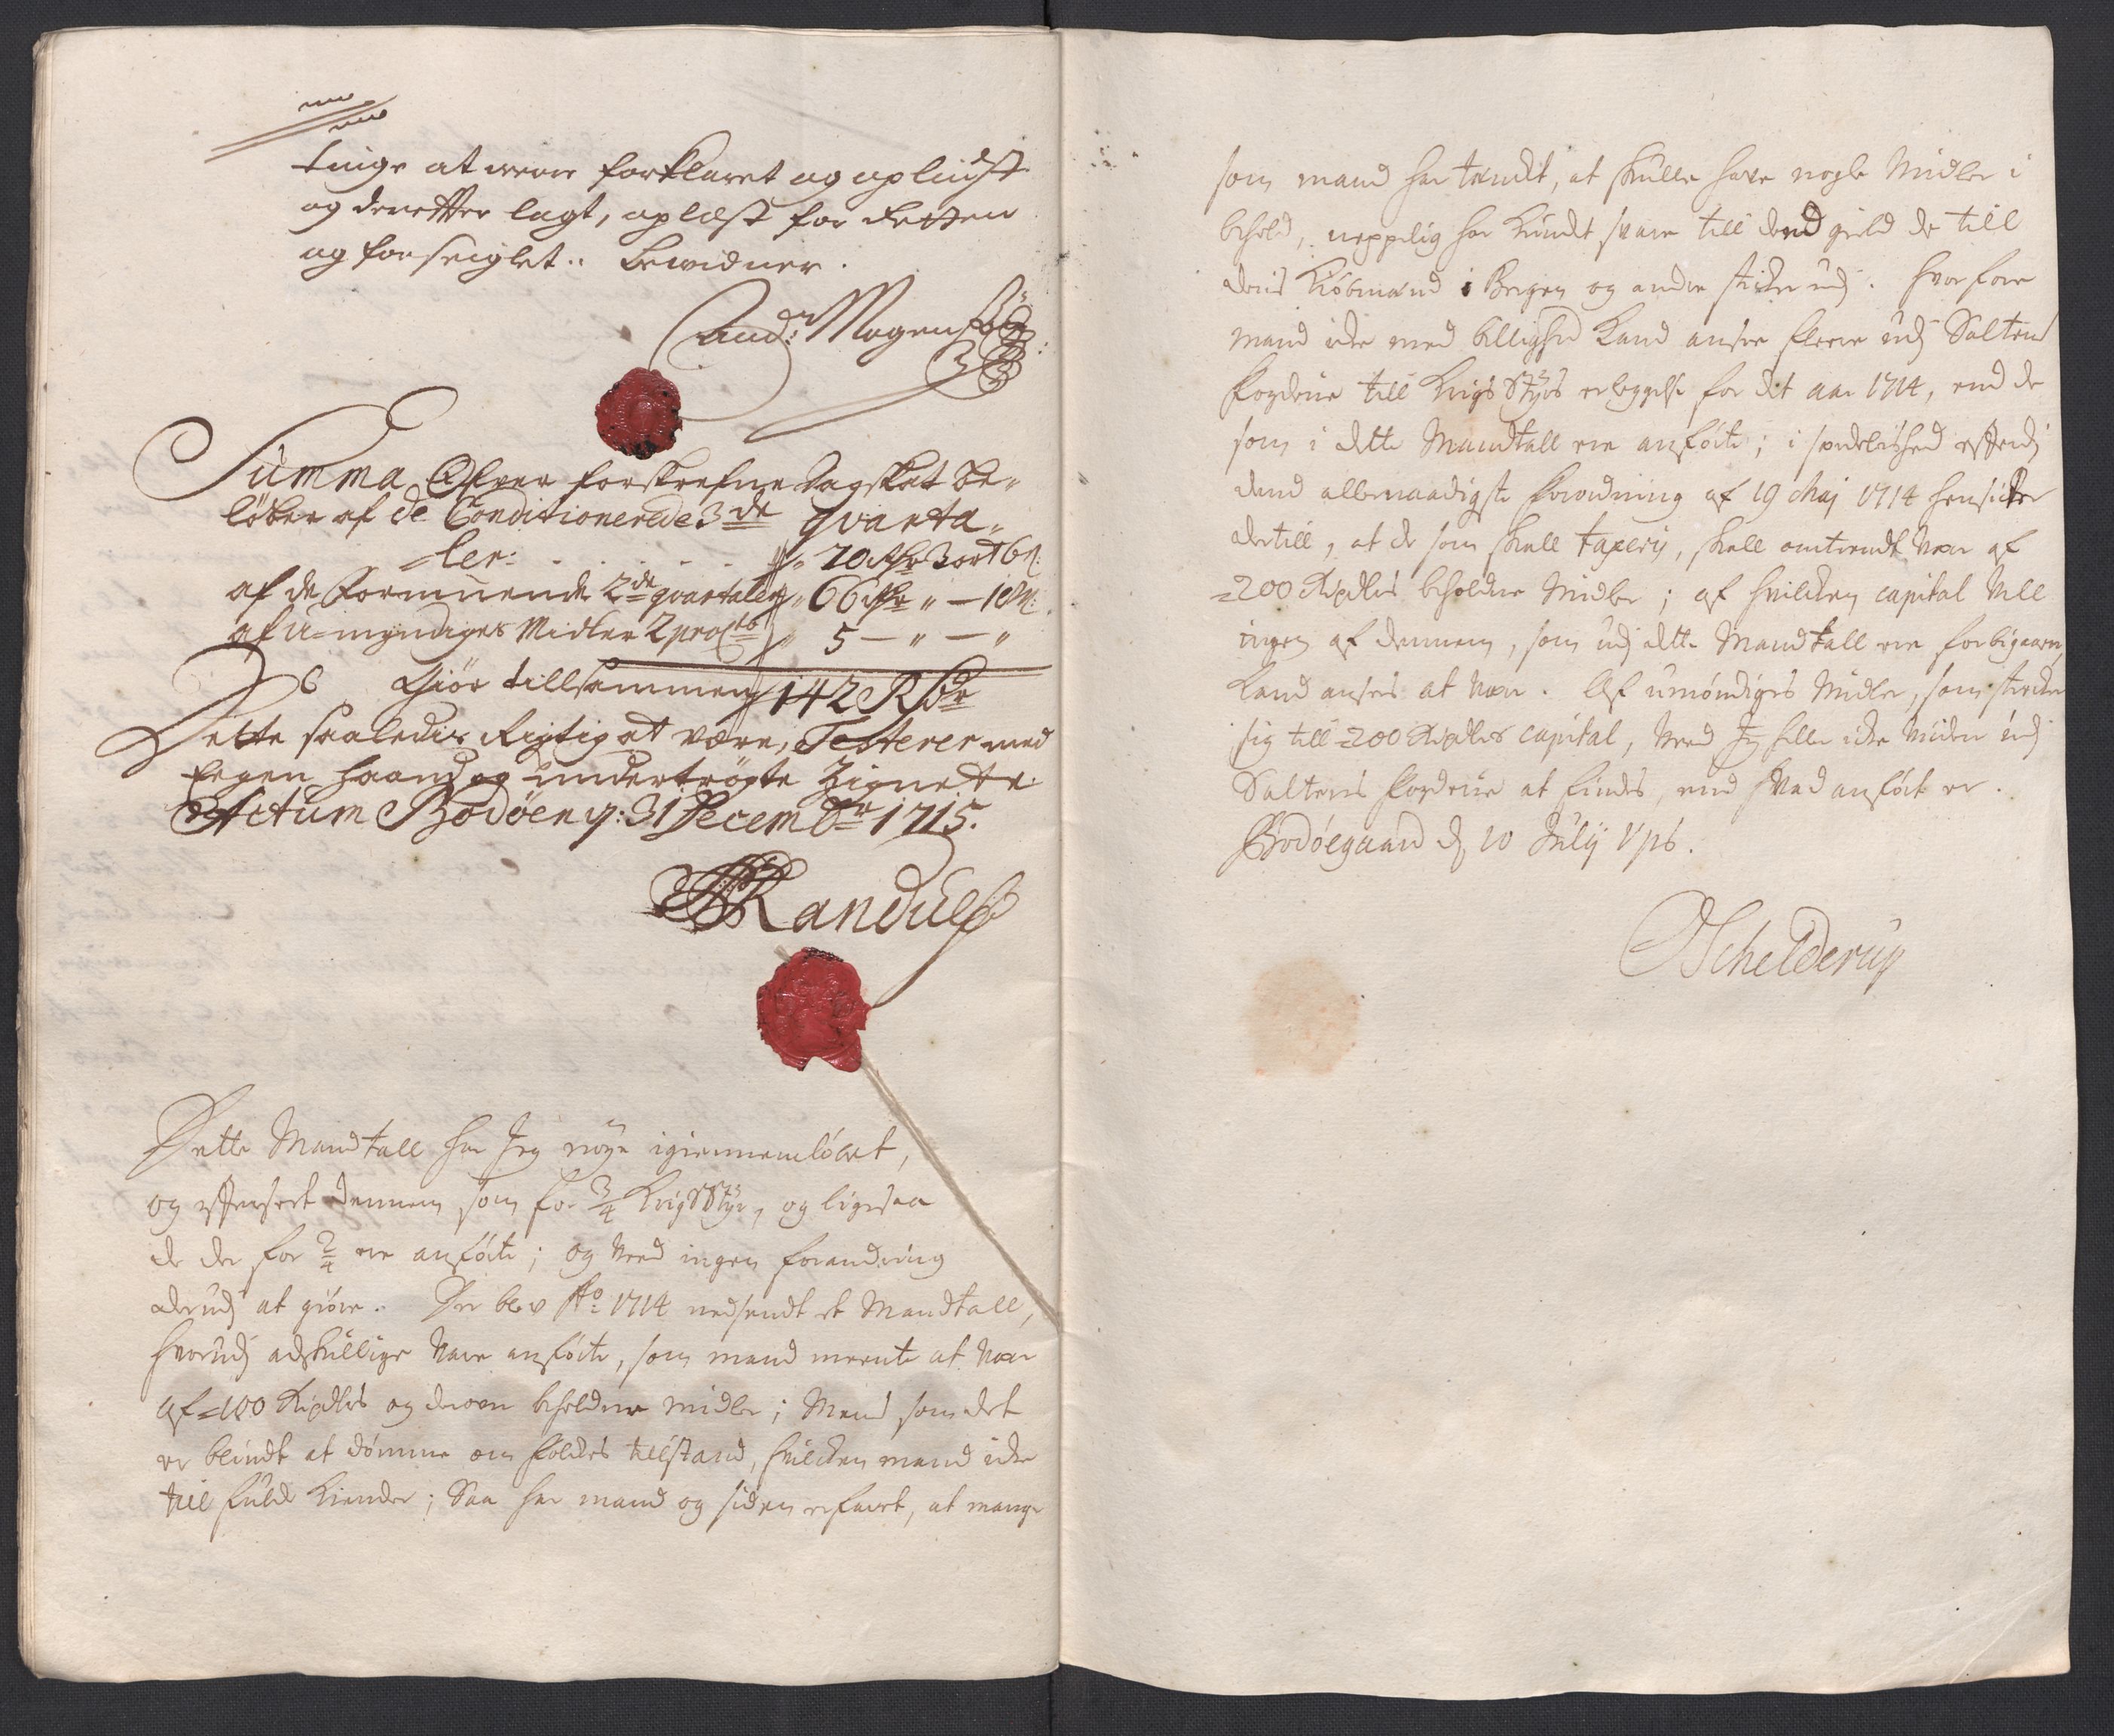 tinge at være forklaret og opliust
og derefter lagt, oplæst for Retten
og forseiglet.. bevidner.
And: Mogensøn
Summa Ofver forskrefne Dagskat be-
løber af de Conditionerede 3de qvarta-
ler. . . . . . 70 Rdr 3 ort 6 s:
af de Formuende 2de qvartaler " 66 Rdr " —18 s:
af u-myndiges Midler 2 pro Cto " 5 — " — "
Giør tillsammen 142 Rdr
Dette saaledis Rigtig at være, Testerer med
Eegen haand og undertrøgte Zignette.
Actum Bodøen d: 31 Decembr 1715.
Randulf
Dette Mandtall har Jeg nøye igiennemløbet,
og efterseet dennem som for 3/4 KrigsStyr, og ligesaa
de der for 2/4 ere anførte; og veed ingen forandring
derudj at giøre. Der blev Ao 1714 nedsendt et Mandtall,
hvorudj adskillige vare anførte, som mand meente at vær
af =100 Rixdlrs og derover beholdne midler; Mend som det
er blindt at dømme om folckes tillstand, hvilcken mand icke
till fulde kiender; Saa har mand og siden erfaret, at mange
som mand har tænckt, at skulle have nogle Midler i
behold, neppelig har kundt svare till dend gield de till
deris Kiøbmænd i Bergen og andre sticker udj. Hvorfore
mand icke med billighed kand ansee fleere udj Saltens
Fogderie till Krigs Styrs erleggelse for det aar 1714, end de
som i dette Mandtall ere anførte; i særdelished efterdj
dend allernaadigste Forordning af 19 Maj 1714 hensicter
dertill, at de som skall taxeris, skall omtrendt vær af
=200 Rixdlrs beholdne Midler; af hvilcken capital vell
ingen af dennem, som udj dette Mandtall ere forbigaaen,
kand ansees at vær. Af umøndiges Midler, som strecker
sig till =200 Rixdlrs capital, veed Jeg heller icke videre udj
Saltens Fogderie at findes, end hvad anført er.
Bodøegaard d 10 Julij 1716.
OSchelderup